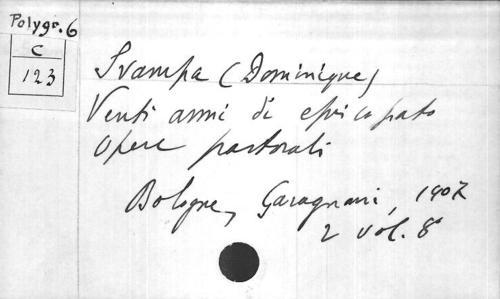 Polygr. 6
C
123
Svampa (Dominique)
Venti anni di episcopato
Opere pastorali
Bologne, Garagnani, 1907
2 vol. 8°